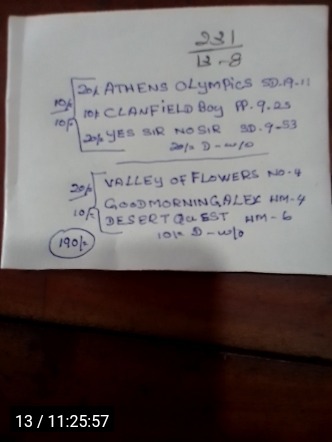 231
13-8
20/ ATHENS OLYMPICS SD.9.11
10/ 10/ CLANFIELD Boy PP.9.25
10/ 20/ YES SIR NO SIR SD.9-53
20/= D-w/o
20/ VALLEY OF FLOWERS NO-4
GOODMORNINGALEX HM-4
10/= DESERT QUEST HM-6
10/= D-w/o
190/=
13 / 11:25:57